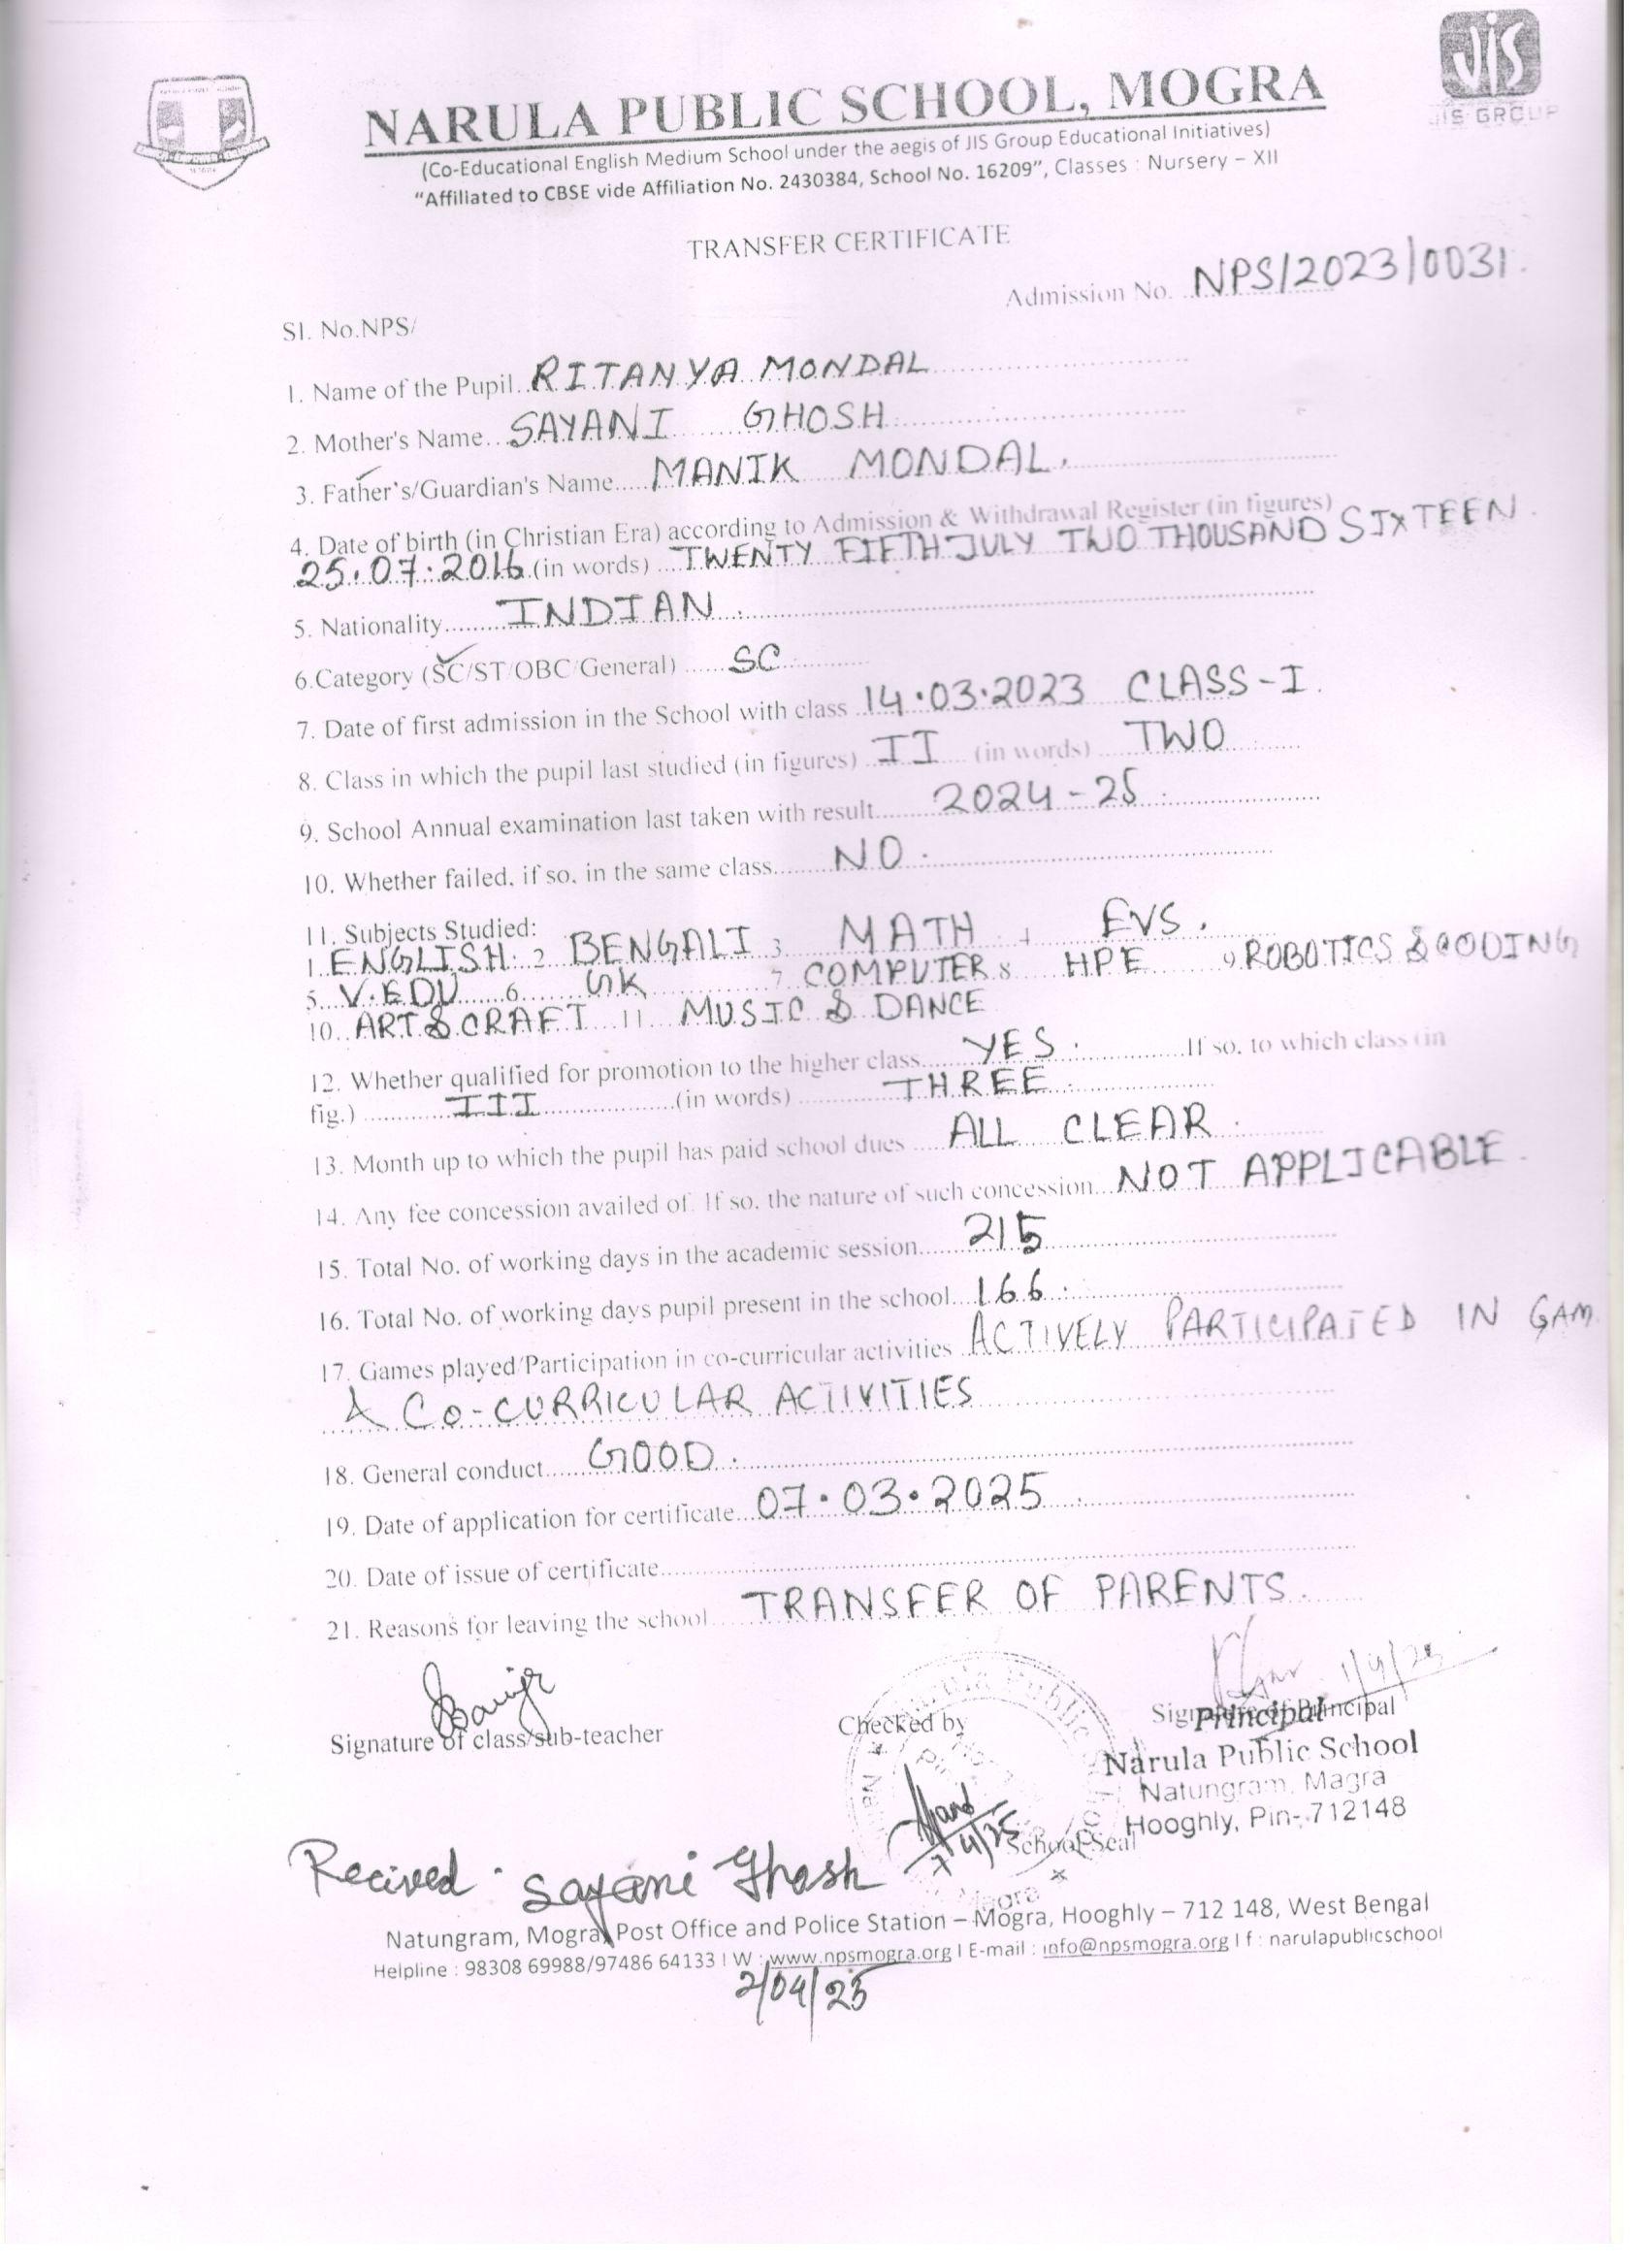 JIS
JIS GROUP
NARULA PUBLIC SCHOOL, MOGRA
(Co-Educational English Medium School under the aegis of JIS Group Educational Initiatives)
"Affiliated to CBSE vide Affiliation No. 2430384, School No. 16209", Classes : Nursery – XII
TRANSFER CERTIFICATE
Admission No. NPS/2023/0031.
Sl. No.NPS/
1. Name of the Pupil RITANYA MONDAL
2. Mother's Name SAYANI GHOSH
3. Father's/Guardian's Name MANIK MONDAL.
4. Date of birth (in Christian Era) according to Admission & Withdrawal Register (in figures)
25.07.2016 (in words) TWENTY FIFTH JULY TWO THOUSAND SIXTEEN.
5. Nationality INDIAN.
6.Category (SC/ST/OBC/General) SC
7. Date of first admission in the School with class 14.03.2023 CLASS-I.
8. Class in which the pupil last studied (in figures) II (in words) TWO
9. School Annual examination last taken with result 2024-25.
10. Whether failed, if so, in the same class NO.
11. Subjects Studied:
1. ENGLISH 2 BENGALI 3 MATH 4 EVS.
5. V.EDU 6. GK 7 COMPUTER 8 HPE 9 ROBOTICS & CODING
10. ART & CRAFT 11 MUSIC & DANCE
12. Whether qualified for promotion to the higher class YES. If so, to which class (in
fig.) III (in words) THREE
13. Month up to which the pupil has paid school dues ALL CLEAR.
14. Any fee concession availed of. If so, the nature of such concession NOT APPLICABLE.
15. Total No. of working days in the academic session 215
16. Total No. of working days pupil present in the school 166.
17. Games played/Participation in co-curricular activities ACTIVELY PARTICIPATED IN GAM
& CO-CURRICULAR ACTIVITIES
18. General conduct GOOD.
19. Date of application for certificate 07.03.2025
20. Date of issue of certificate
21. Reasons for leaving the school TRANSFER OF PARENTS.
Signature of class/sub-teacher
Checked by
Signature of Principal
Principal
Narula Public School
Natungram, Magra
Hooghly, Pin-712148
School Seal
Recived . Sayani Ghosh
Natungram, Mogra, Post Office and Police Station – Mogra, Hooghly – 712 148, West Bengal
Helpline : 98308 69988/97486 64133 I W : www.npsmogra.org I E-mail : info@npsmogra.org I f : narulapublicschool
2/04/25